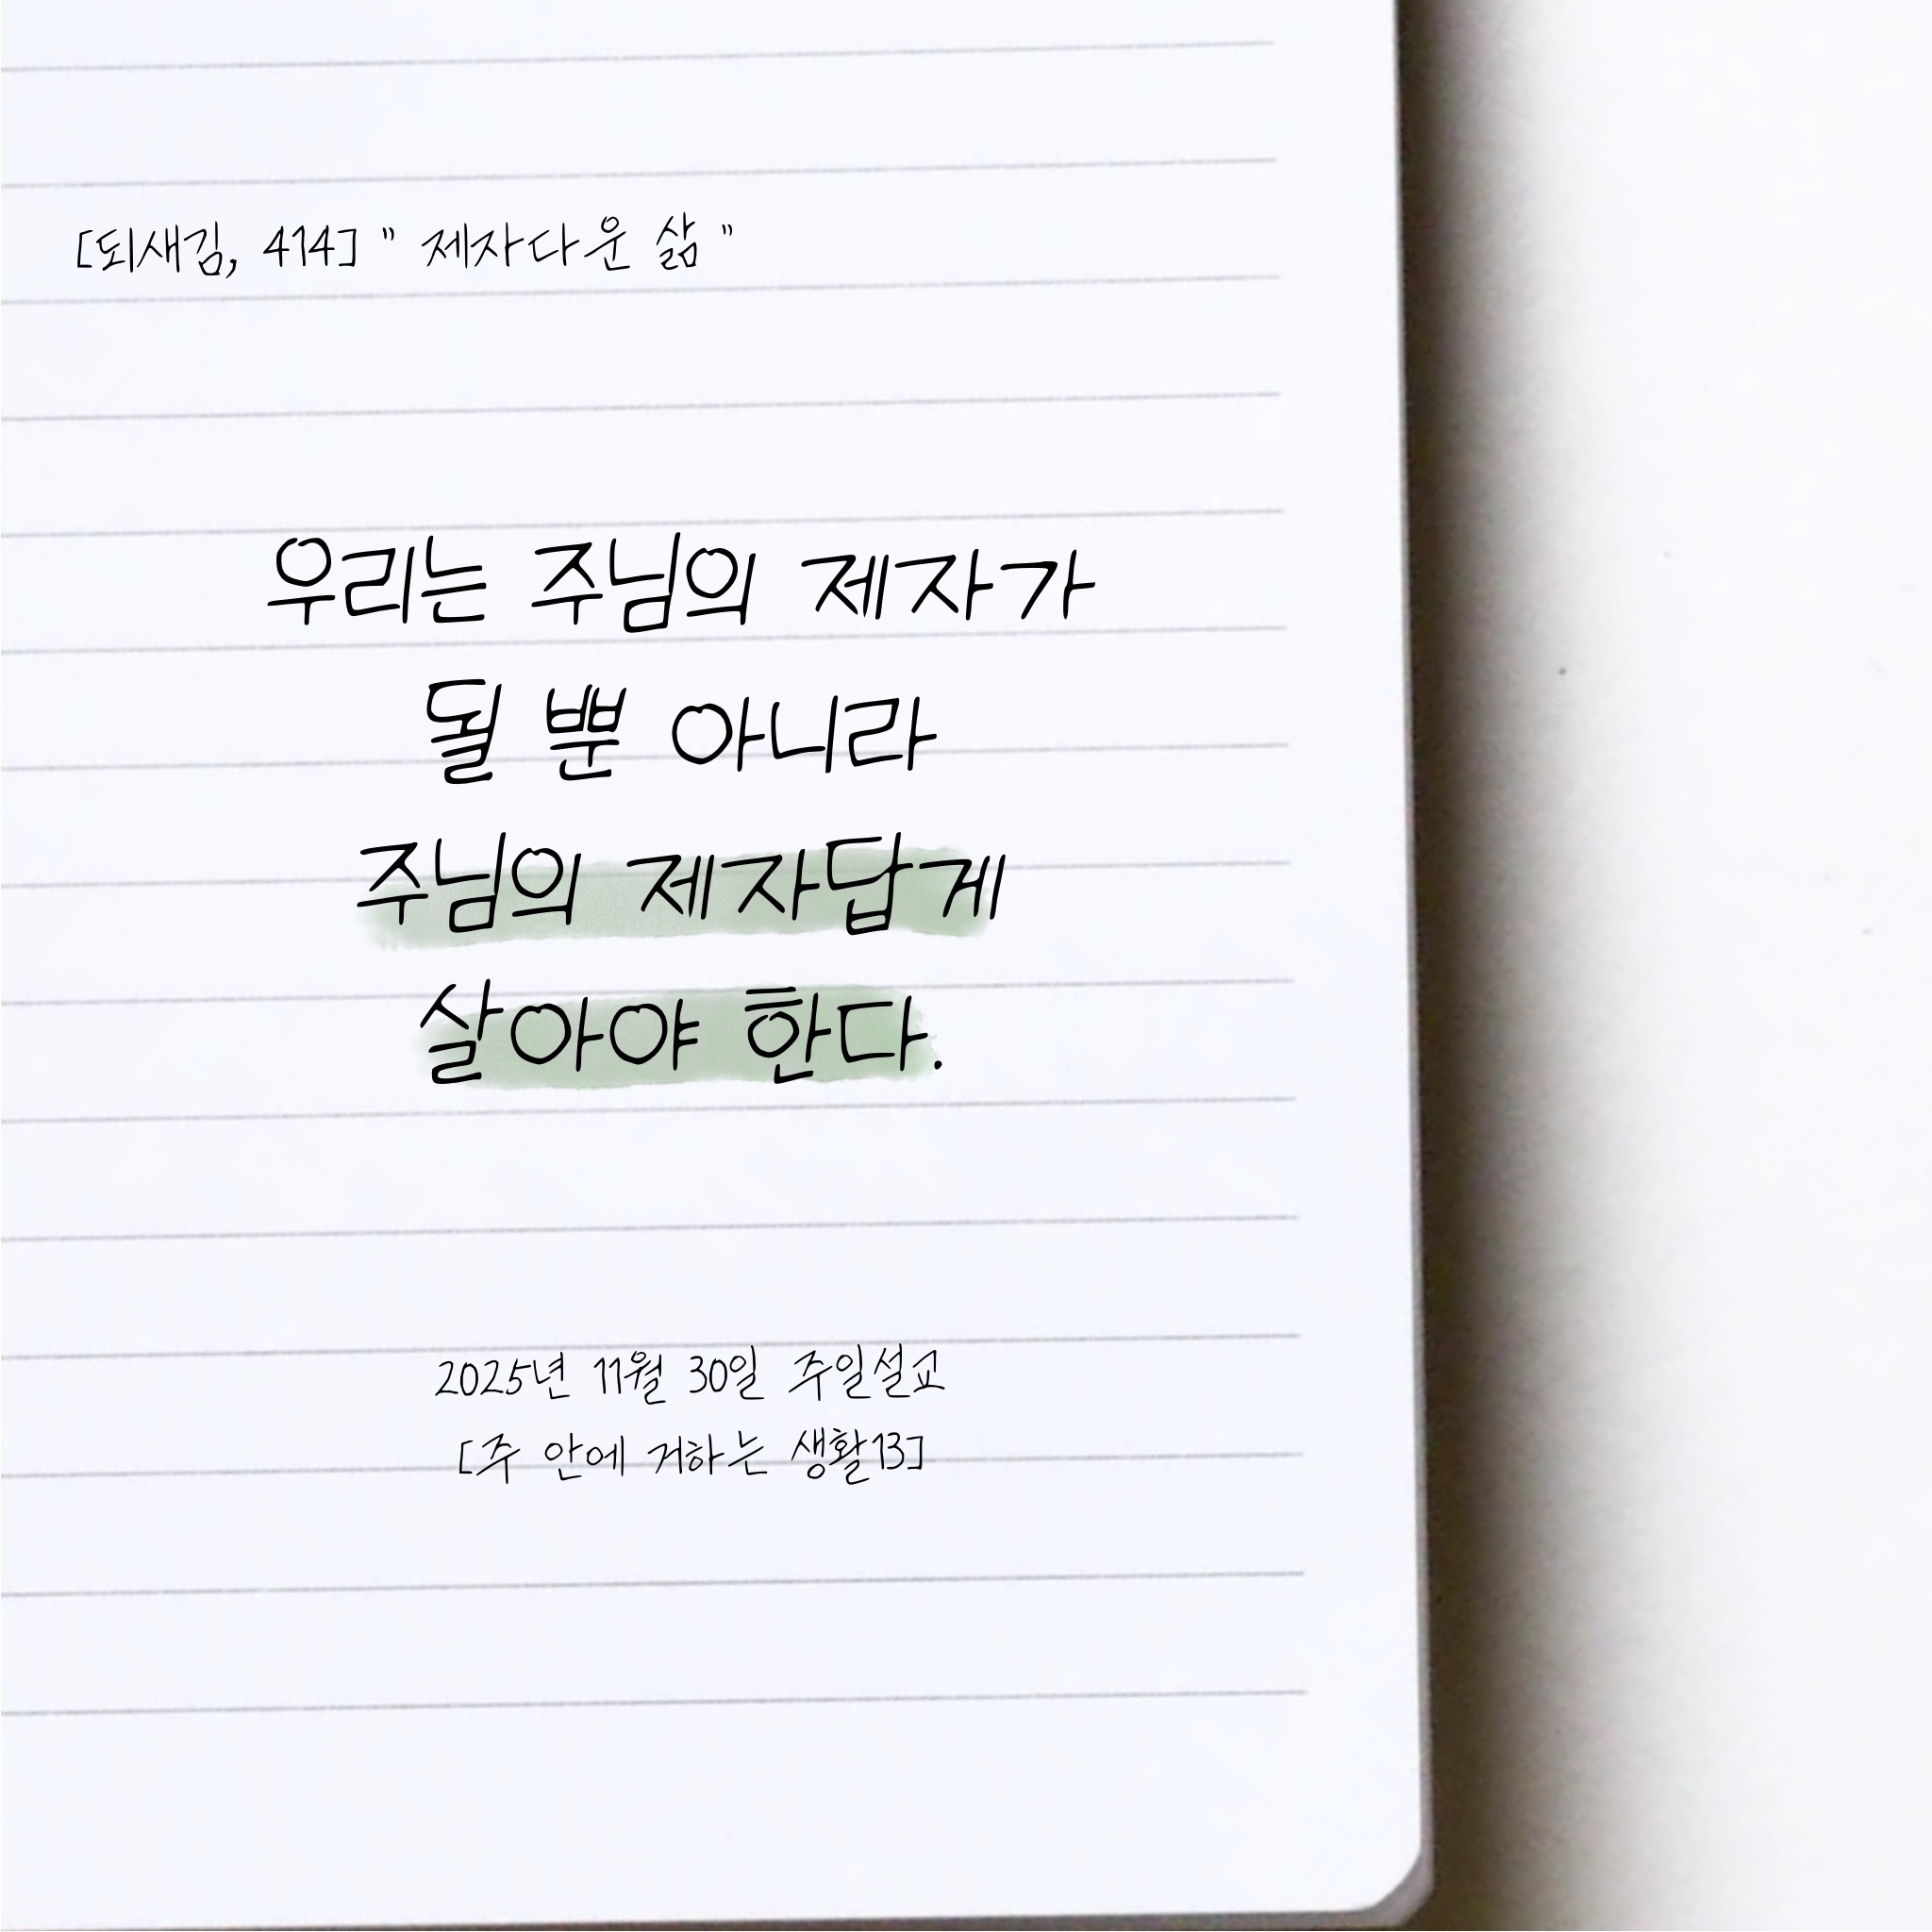 [되새김, 414] " 제자다운 삶 "
우리는 주님의 제자가
될 뿐 아니라
주님의 제자답게
살아야 한다.
2025년 11월 30일 주일설교
[주 안에 거하는 생활13]